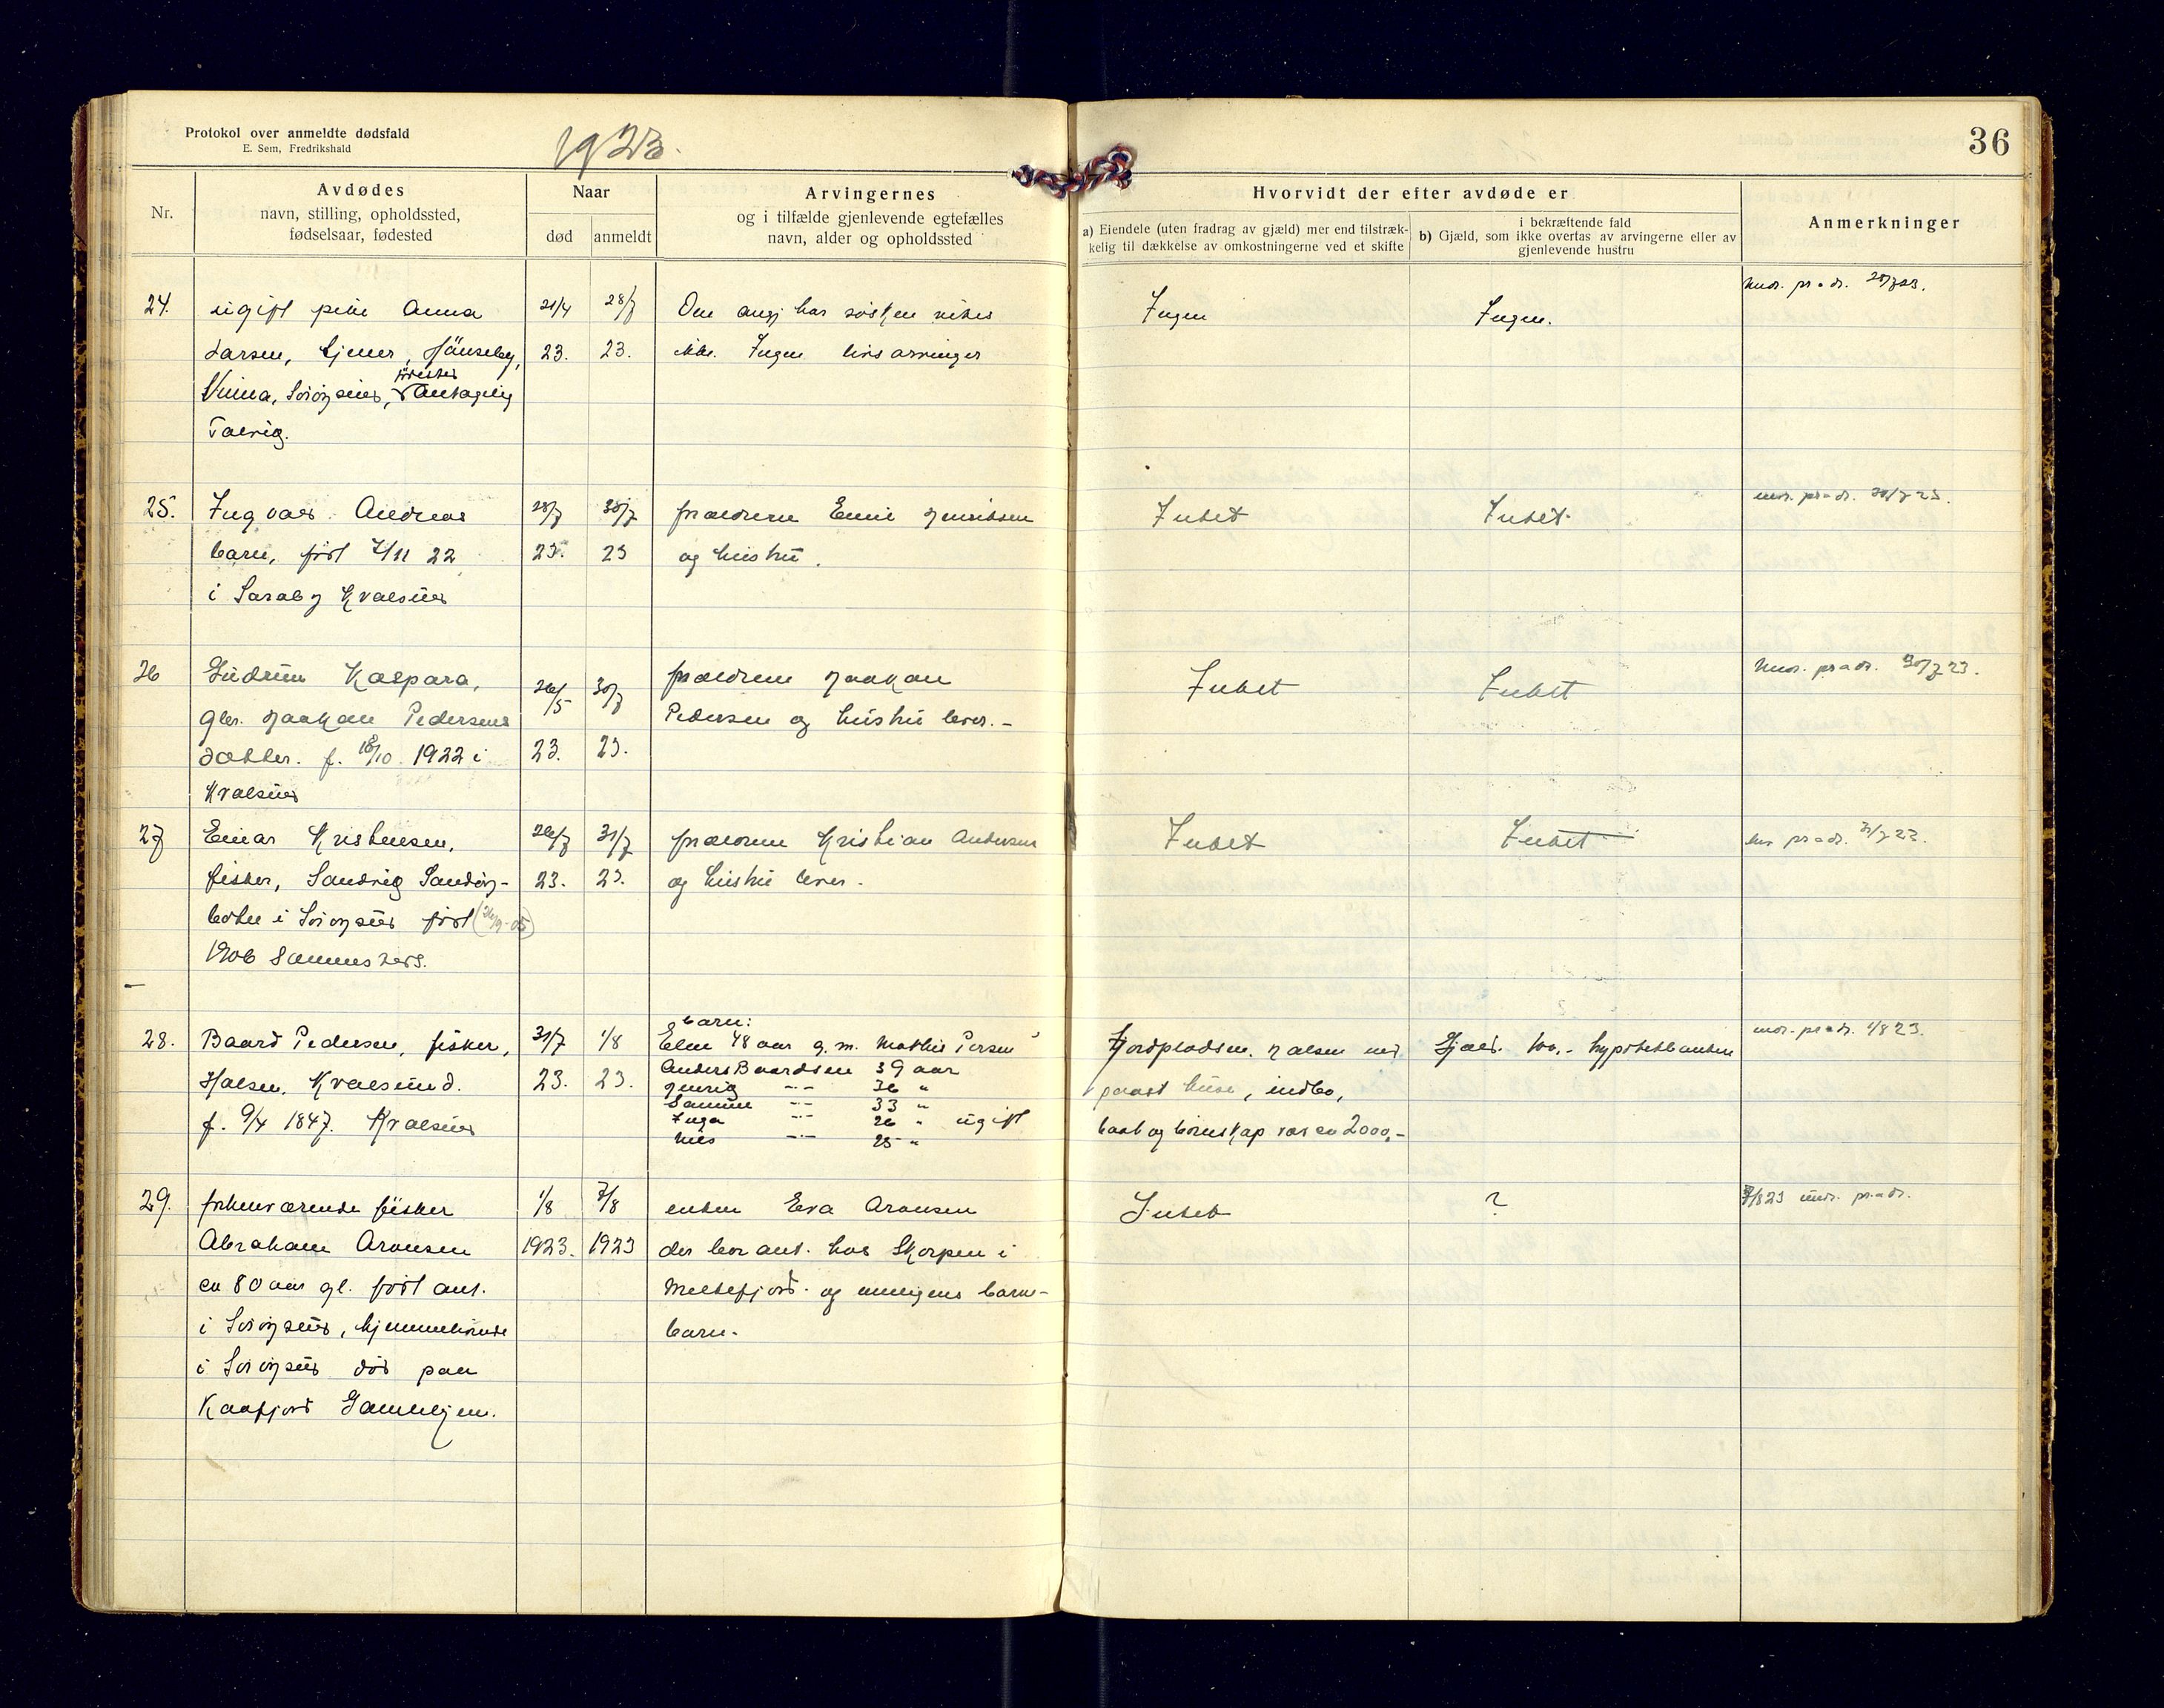 Protokol over anmeldte dødsfald
E. Sem, Fredrikshald
1923.
36
Nr.
Avdødes
navn, stilling, opholdssted,
fødselsaar, fødested
Naar
død
anmeldt
Arvingernes
og i tilfælde gjenlevende egtefælles
navn, alder og opholdssted
Hvorvidt der efter avdøde er
a) Eiendele (uten fradrag av gjæld) mer end tilstræk-
kelig til dækkelse av omkostningerne ved et skifte
i bekræftende fald
b) Gjæld, som ikke overtas av arvingerne eller av
gjenlevende hustru
Anmerkninger
24.
ugift pike Anna
Larsen, tjener,
Sørøysund, antagelig
født
Talvig.
21/4
23.
28/7
23.
Om angj. har søsken vites
ikke. Ingen livsarvinger
Ingen
Ingen.
und. pr. adr. 28/7 23.
25.
Ingvar Andreas
barn, født 7/11 22
i Saraby Kvalsund
28/7
23.
30/7
23
forældrene Emil Henriksen
og hustru.
Intet
Intet
und. pr. adr. 30/7 23.
26
Gudrun Kaspara,
gbr. Haakan Pedersens
datter. f. 18/10 1922 i
Kvalsund
26/5
23.
30/7
23.
forældrene Haakan
Pedersen og hustru lever. -
Intet
Intet
und. pr. adr. 30/7 23.
27
Einar Kristensen,
fisker, Sandvig Sandøy-
botn i Sørøysund født (26/9-05)
1906 sammesteds.
26/7
23.
31/7
23.
forældrene Kristian Andersen
og hustru lever.
Intet
Intet
und. pr. adr. 31/7 23.
28.
Baard Pedersen, fisker,
Halsen, Kvalsund.
f. 9/4 1847. Kvalsund
31/7
23.
1/8
23.
barn:
Elen 48 aar g. m. Mathis Persen
Anders Baardsen 39 aar
Henrig -"- 36 "
Samuel -"- 33 "
Inga -"- 26 " ugift
Nils -"- 25 "
Jordpladsen Halsen med
paast. huse, indbo,
baat og bruskap vær ca 2000,-
Gjæld. 100,- hypotekbanken
und. pr. adr. 1/8 23.
29.
forhenværende fisker
Abraham Aronsen
ca 80 aar gl. født ant.
i Sørøysund, hjemmehørende
i Sørøysund død paa
Kaafjord Gamlehjem.
1/8
1923.
7/8
1923
enken Eva Aronsen
der bor ant. hos Skorpen i
Meltefjord og muligens barne-
barn.
Intet
?
7/8 23 und. pr. adr.